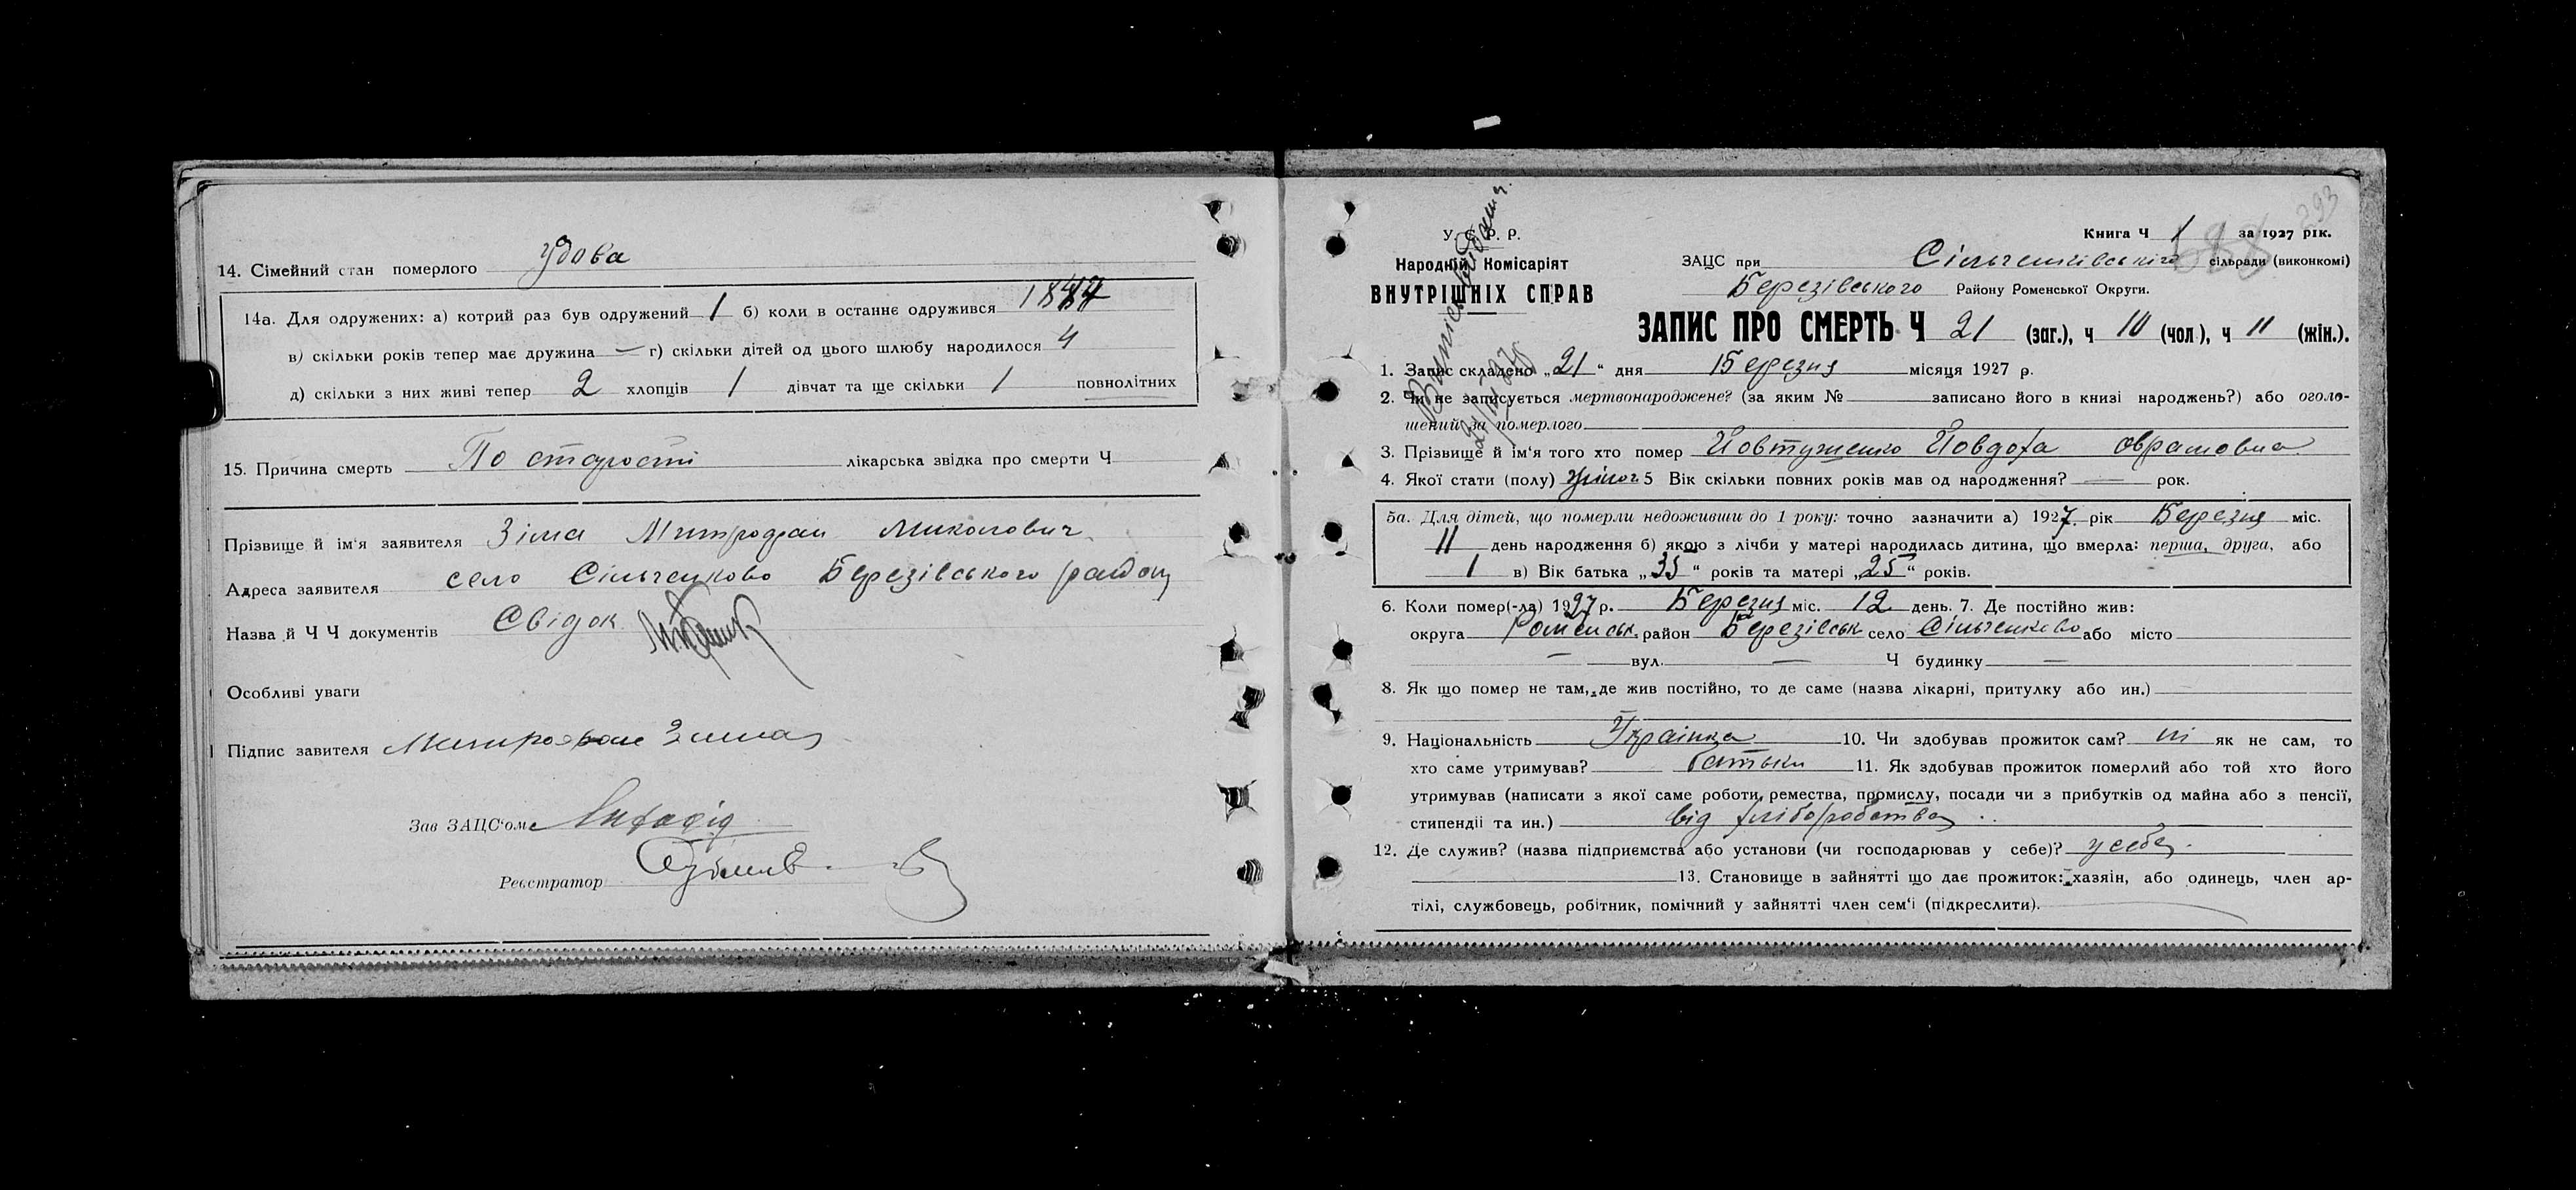 14. Сімейний стан померлого удова
14а. Для одружених: а) котрий раз був одружений 1 б) коли в останнє одружився
в) скільки років тепер має дружина — г) скільки дітей од цього шлюбу народилося 4
д) скільки з них живі тепер 2 хлопців 1 дівчат та ще скільки 1 повнолітних
15. Причина смерть По старості лікарська звідка про смерти Ч
Прізвище й ім'я заявителя Зіма Митрофан Миколович
Адреса заявителя село Сільченково Березівського району
Назва й Ч Ч документів Свідок
Особливі уваги
Підпис завителя Митрофан Зима
Зав ЗАЦС'ом
Реєстратор
293
У. С. Р. Р.
Народній Комісаріят
ВНУТРІШНІХ СПРАВ
Книга Ч 1 за 1927 рік.
ЗАЦС при Сільченківського сільради (виконкомі)
Березівського Району Роменської Округи.
ЗАПИС ПРО СМЕРТЬ Ч 21 (заг.), ч 10 (чол.), ч 11 (жін.).
1. Запис складено „21“ дня Березня місяця 1927 р.
2. Чи не записується мертвонароджене? (за яким № записано його в книзі народжень?) або оголо-
шений за померлого
3. Прізвище й ім'я того хто помер Йовтушенко Йовдоха Оврамовна
4. Якої стати (полу) жіноч 5 Вік скільки повних років мав од народження? — рок.
5а. Для дітей, що померли недоживши до 1 року: точно зазначити а) 1927 рік Березня міс.
11 день народження б) якою з лічби у матері народилась дитина, що вмерла: перша, друга, або
1 в) Вік батька „35“ років та матері „25“ років.
6. Коли помер(-ла) 1927 р. Березня міс. 12 день. 7. Де постійно жив:
округа Роменськ. район Березівськ село Сільченково або місто
— вул. — Ч будинку —
8. Як що помер не там, де жив постійно, то де саме (назва лікарні, притулку або ин.)
9. Національність Українка 10. Чи здобував прожиток сам? ні як не сам, то
хто саме утримував? батьки 11. Як здобував прожиток померлий або той хто його
утримував (написати з якої саме роботи, ремества, промислу, посади чи з прибутків од майна або з пенсії,
стипендіі та ин.) від хліборобства
12. Де служив? (назва підприємства або установи (чи господарював у себе)? у себе
13. Становище в зайнятті що дає прожиток: хазяін, або одинець, член ар-
тілі, службовець, робітник, помічний у зайнятті член сем'і (підкреслити).